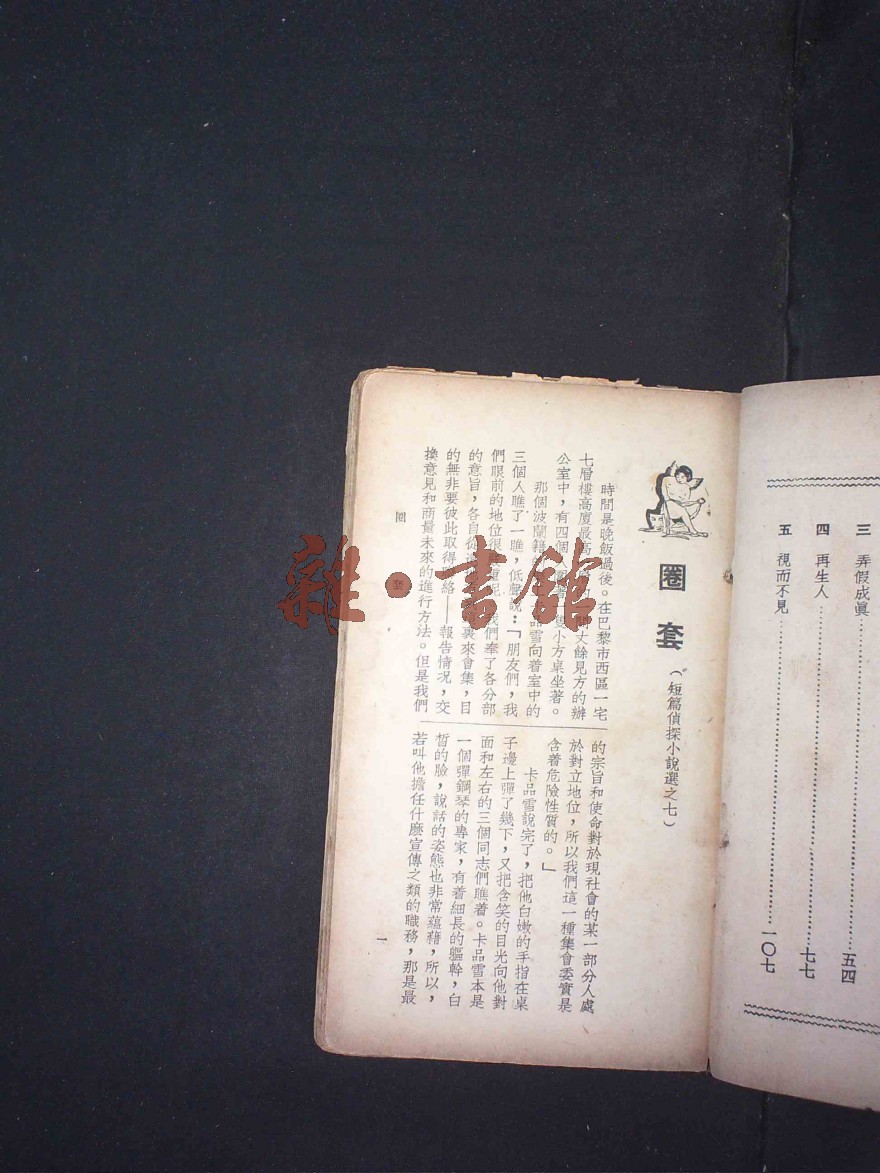 三 弄假成眞……………………五四
四 再生人……………………七七
五 視而不見……………………一〇七
圈套
(短篇偵探小說選之七)
時間是晚飯過後。在巴黎市西區一宅
七層樓高廈最高 間大餘見方的辦
公室中,有四個人 隻小方桌坐著。
那個波蘭籍 品雪向着室中的
三個人瞧了一瞧,低聲說:「朋友們,我
們眼前的地位很 重呢 我們奉了各分部
的意旨,各自從 裏來會集,目
的無非要彼此取得 絡——報告情況,交
換意見和商量未來的進行方法。但是我們
的宗旨和使命對於現社會的某一部分人處
於對立地位,所以我們這一種集會委實是
含着危險性質的。」
卡品雪說完了,把他白嫩的手指在桌
子邊上彈了幾下,又把含笑的目光向他對
面和左右的三個同志們瞧着。卡品雪本是
一個彈鋼琴的專家,有着細長的軀幹,白
皙的臉,說話的姿態也非常蘊藉,所以,
若叫他擔任什麽宣傳之類的職務,那是最
圈套
一
雜·書館